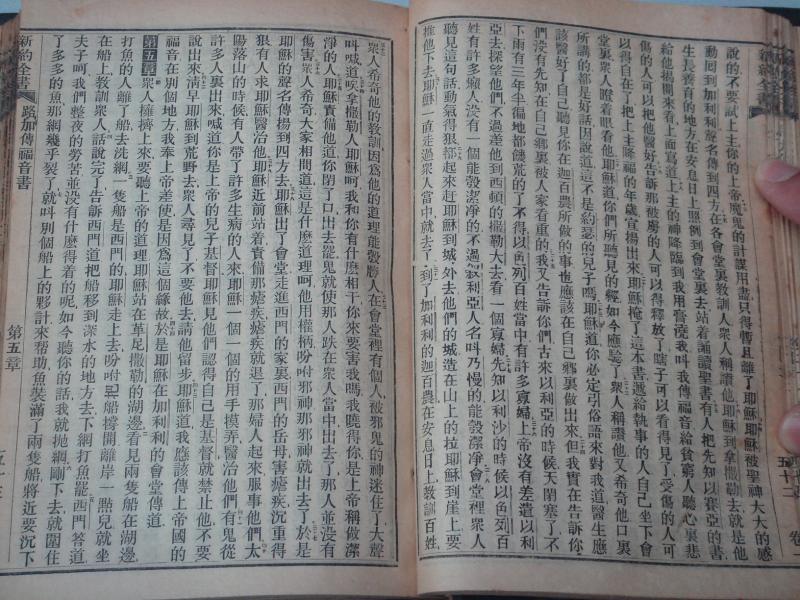 說的不要試上主你的上帝魔鬼的計謀用盡只得暫且離了耶穌耶穌被聖神大大的感
動回到加利利聲名傳到四方在各會堂裏教訓人衆人稱讚他耶穌到拿撒勒去就是他
生長養育的地方在安息日上照例到會堂裏去站着誦讀聖書有人把先知以賽亞的書
給他揭開來看上面寫道上主的神降臨到我用膏澆我叫我傳福音給貧窮人聽心裏悲
傷的人可以把他醫好告訴那被虜的人可以得釋放了瞎子可以看得見了受傷的人可
以得自在了把上主降福的年歲宣揚出來耶穌掩了這本書遞給執事的人自己坐下會
堂裏衆人瞪着眼看他耶穌道你們所聽見的經如今應驗了衆人稱讚他又希奇他口裏
所講的都是好話因說道這不是約瑟的兒子嗎耶穌道你必定引俗語來對我道醫生應
該醫好了自己聽見你在迦百農所做的事也應該在自己鄉裏做出來但我實在告訴你
們沒有先知在自己鄉裏被人家看重的我又告訴你們古來以利亞的時候天閉塞了不
下雨有三年半徧地都饑荒的了不得以色列百姓當中有許多寡婦上帝沒有差遣以利
亞去探望他們不過差他到西頓的撒勒大去看一個寡婦先知以利沙的時候以色列百
姓有許多癩人沒有一個能彀潔淨的不過叙利亞人名叫乃慢的能彀潔淨會堂裏衆人
聽見這句話動氣得狠都起來赶耶穌到城外去他們的城造在山上的拉耶穌到崖上要
推他下去耶穌一直走過衆人當中就去了到了加利利的迦百農在安息日上教訓百姓
衆人希奇他的教訓因爲他的道理能彀勝人在會堂裏有個人被邪鬼的神迷住了大聲
叫喊道唉拿撒勒人耶穌呵我和你有什麼相干你來要害我嗎我曉得你是上帝稱做潔
淨的人耶穌責備他道你閉了口出去罷鬼就使那人跌在衆人當中出去了那人並沒有
傷害衆人希奇大家相問道這是什麼道理呵他用權柄吩咐邪神那邪神就出去了於是
耶穌的聲名傳揚到四方去耶穌出了會堂走進西門的家裏西門的岳母害瘧疾沉重得
狠有人求耶穌醫治他耶穌近前站着責備那瘧疾瘧疾就退了那婦人起來服事他們太
陽落山的時候有人帶了許多生病的人來耶穌一個一個的用手摸弄醫治他們有鬼從
許多人裏出來喊道你是上帝的兒子基督耶穌見他們認得自己是基督就禁止他不要
說出來淸早耶穌到荒野去衆人尋見了不要他去請他留步耶穌道我應該傳上帝國的
福音在別個地方我奉上帝差使是因爲這個緣故於是耶穌在加利利的會堂傳道
第五章 衆人擁擠上來要聽上帝的道理耶穌站在革尼撒勒的湖邊看見兩隻船在湖邊
打魚的人離了船去洗網一隻船是西門的耶穌走上去吩咐把船撐開離岸一點兒就坐
在船上教訓衆人話說完了告訴西門道把船移到深水的地方去下網打魚罷西門答道
夫子呵我們整夜的勞苦並沒有什麼得着的呢如今聽你的話我就抛網剛下去就圍住
了多多的魚那網幾乎裂了就叫別個船上的夥計來帮助魚裝滿了兩隻船將近要沉下
新約全書 路加傳福音書 第五章